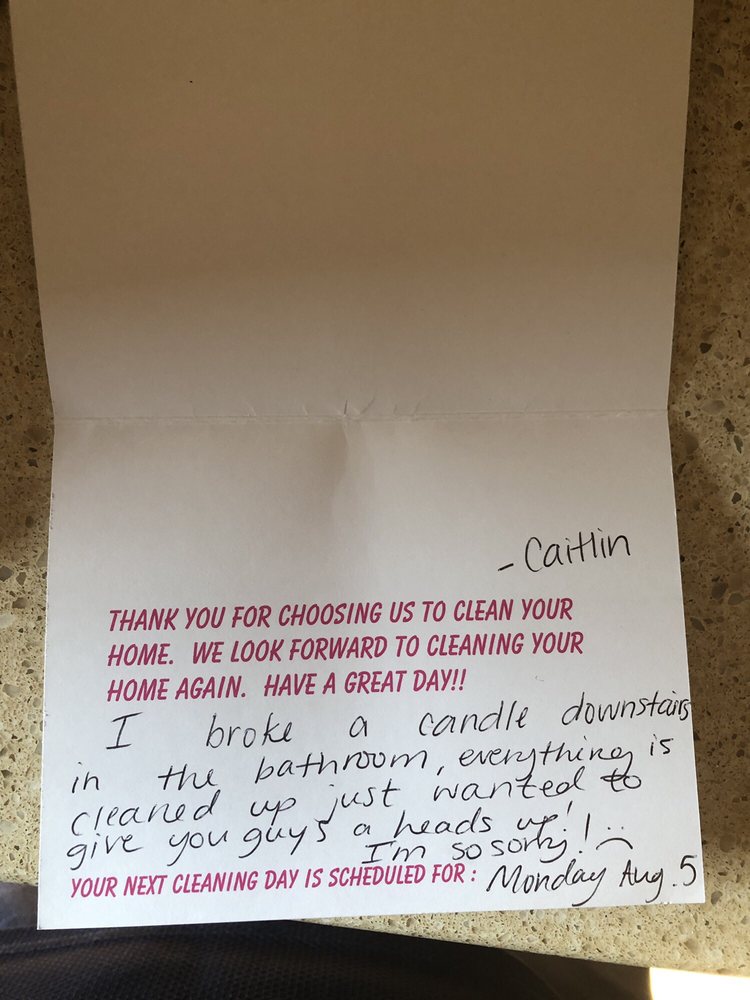 - Caitlin
THANK YOU FOR CHOOSING US TO CLEAN YOUR
HOME. WE LOOK FORWARD TO CLEANING YOUR
HOME AGAIN. HAVE A GREAT DAY!!
I broke a candle downstairs
in the bathroom, everything is
cleaned up just wanted to
give you guys a heads up!
I'm so sorry! :(
YOUR NEXT CLEANING DAY IS SCHEDULED FOR : Monday Aug. 5